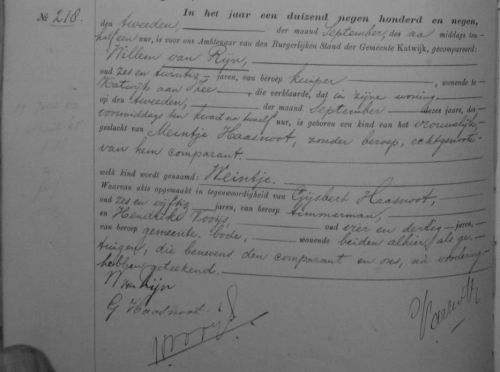 № 218.
In het jaar een duizend negen honderd en negen,
den tweeden, der maand September, des na middags ten
half een ure, is voor ons Ambtenaar van den Burgerlijken Stand der Gemeente Katwijk, gecompareerd:
Willem van Rijn,
oud zes en twintig jaren, van beroep kuiper, wonende te
Katwijk aan Zee, die verklaarde, dat in zijne woning
op den tweeden, der maand September dezes jaars, des
voormiddags ten kwart na twaalf ure, is geboren een kind van het vrouwelijk
geslacht van Meintje Haasnoot, zonder beroep, echtgenoote
van hem comparant.
welk kind wordt genaamd: Weintje.
Waarvan akte opgemaakt in tegenwoordigheid van Gijsbert Haasnoot,
oud zes en vijftig jaren, van beroep timmerman,
en Hendrikus Vooys, oud vier en dertig jaren,
van beroep gemeente-bode, wonende beiden alhier, als ge-
tuigen, die benevens den comparant en ons, na voorlezing
hebben geteekend.
W van Rijn
G Haasnoot